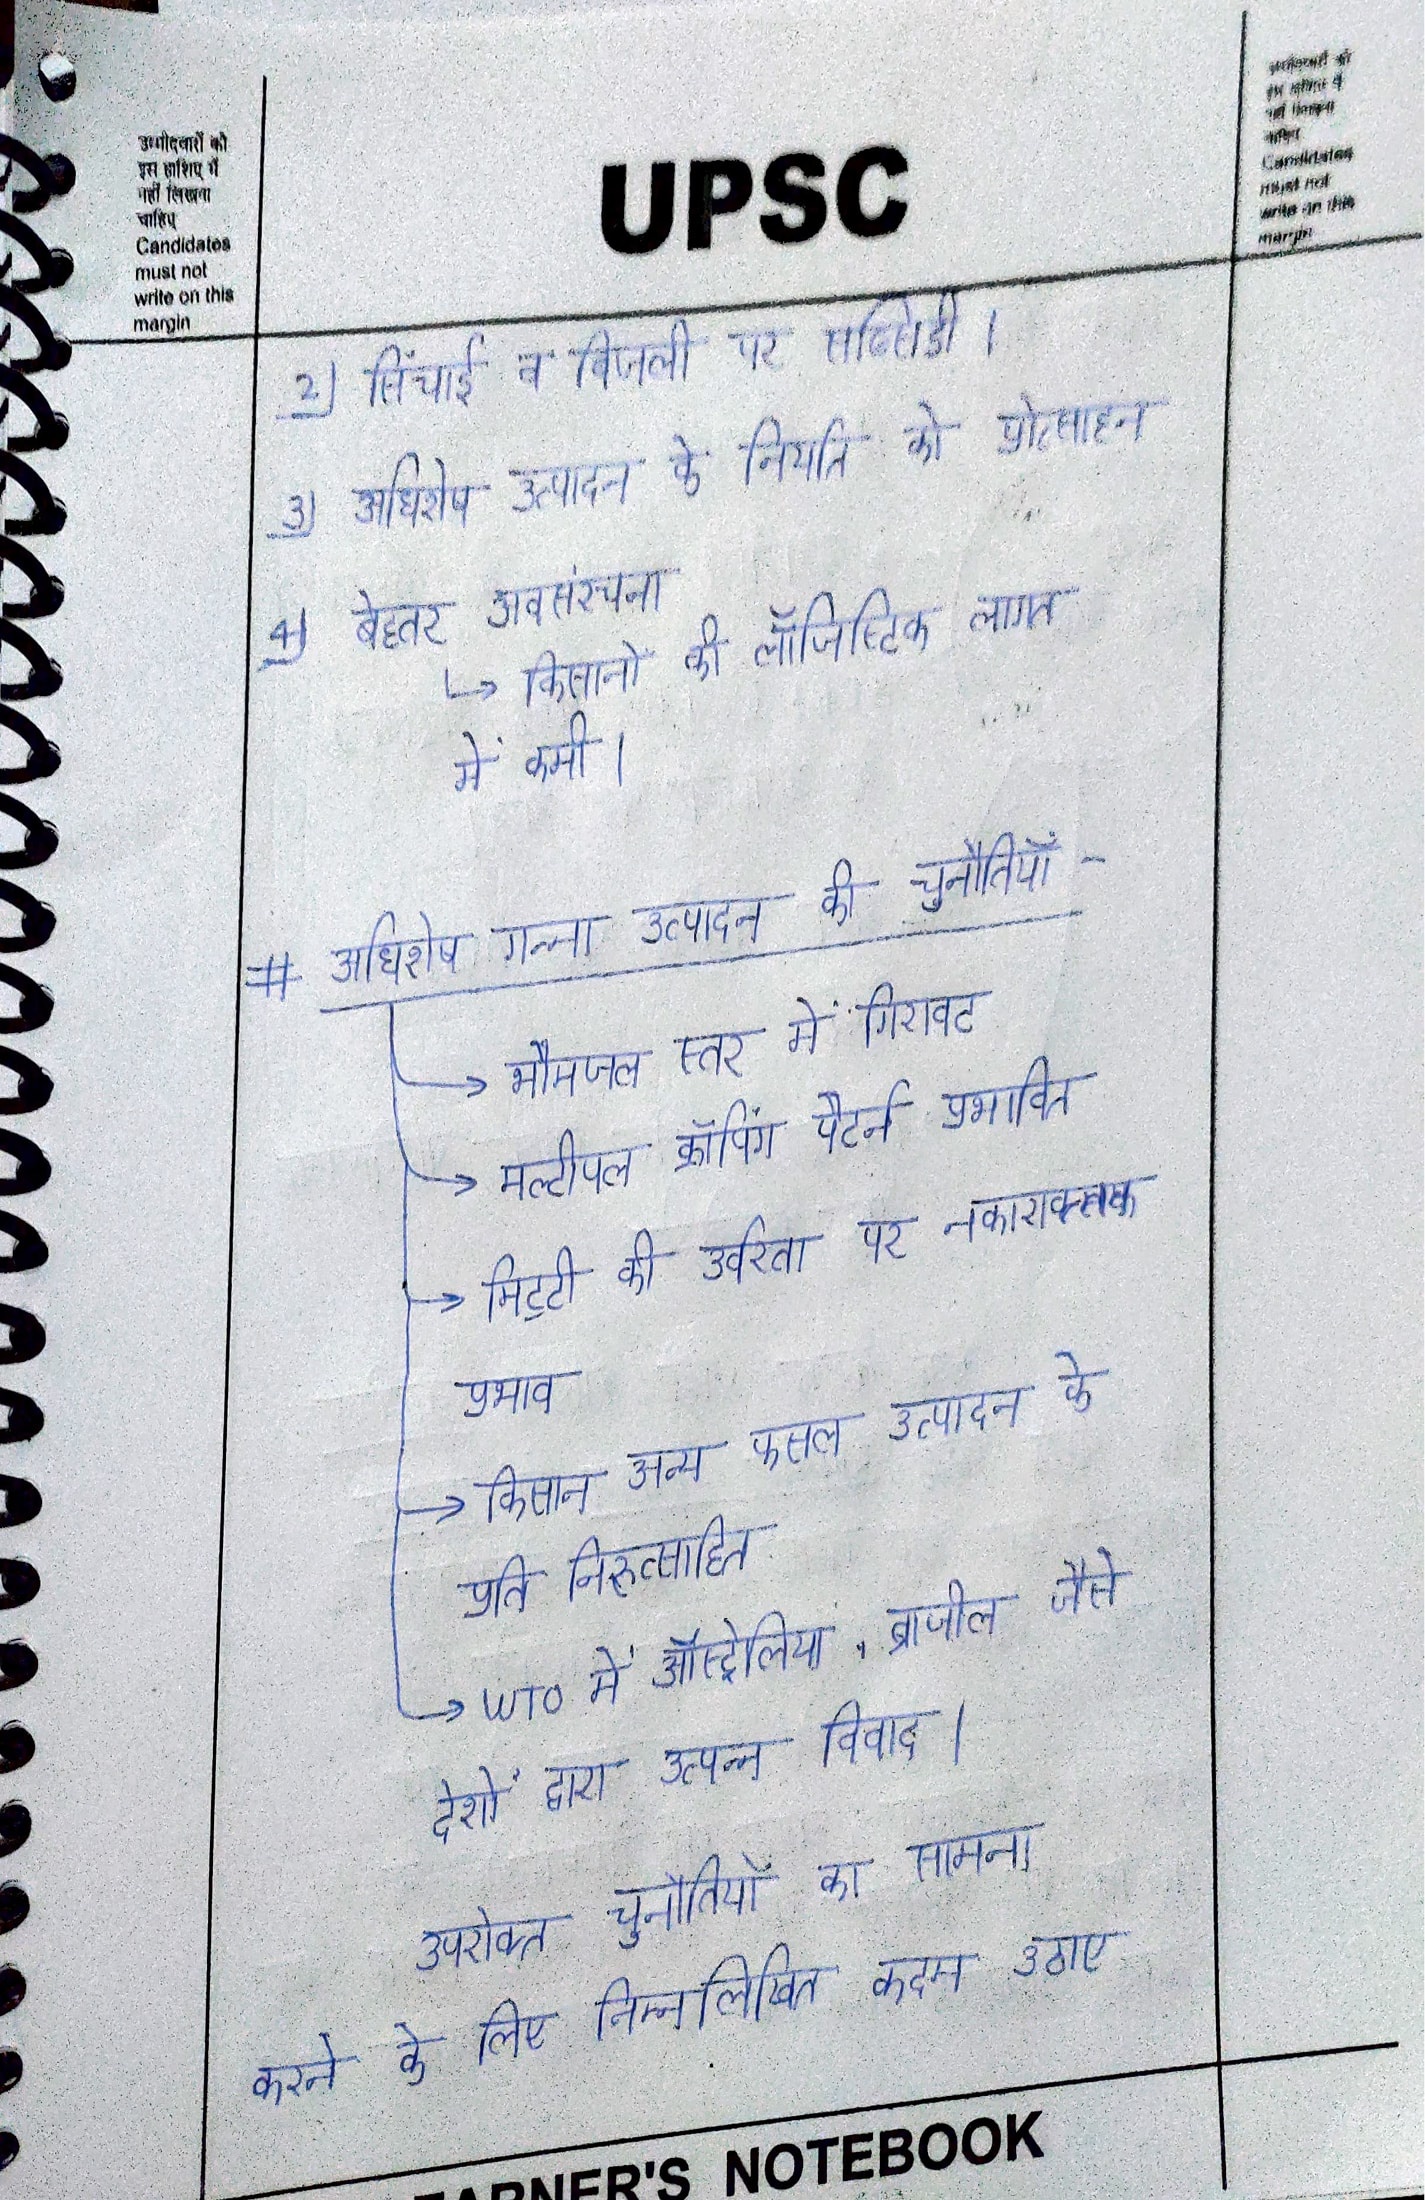 उम्मीदवारों को
इस हाशिए में
नहीं लिखना
चाहिए
Candidates
must not
write on this
margin
UPSC
उम्मीदवारों को
इस हाशिए में
नहीं लिखना
चाहिए
Candidates
must not
write on this
margin
2) सिंचाई व बिजली पर सब्सिडी।
3) अधिशेष उत्पादन के निर्यात को प्रोत्साहन
4) बेहतर अवसंरचना
↳ किसानों की लॉजिस्टिक लागत
में कमी।
# अधिशेष गन्ना उत्पादन की चुनौतियाँ -
→ भौमजल स्तर में गिरावट
→ मल्टीपल क्रॉपिंग पैटर्न प्रभावित
→ मिट्टी की उर्वरता पर नकारात्मक
प्रभाव
→ किसान अन्य फसल उत्पादन के
प्रति निरुत्साहित
→ WTO में ऑस्ट्रेलिया, ब्राजील जैसे
देशों द्वारा उत्पन्न विवाद।
उपरोक्त चुनौतियों का सामना
करने के लिए निम्नलिखित कदम उठाए
EARNER'S NOTEBOOK